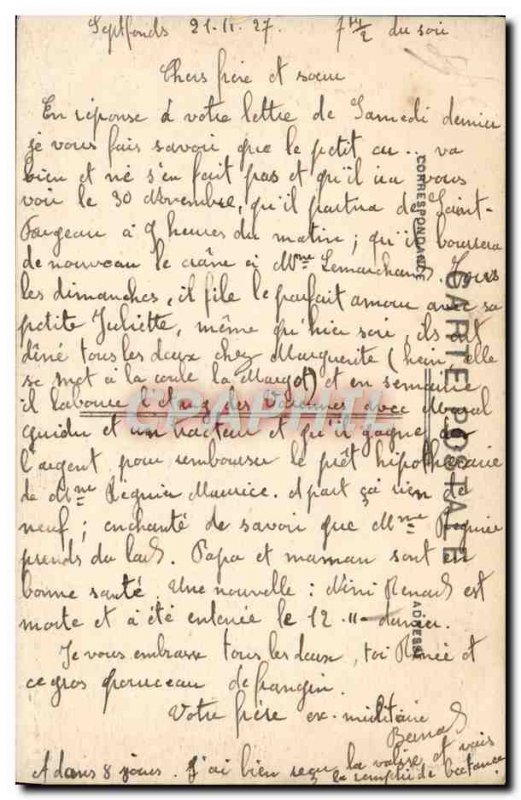 Septfonds 21.11.27. 7 h 1/2 du soir
Chers frère et sœur
En réponse à votre lettre de Samedi dernier
je vous fais savoir que le petit au .. va
bien et ne s'en fait pas et qu'il ira vous
voir le 30 Novembre, qu'il partira de Saint-
Fargeau à 9 heures du matin; qu'il bourrera
de nouveau le crâne à Mme Lemarchand. Tous
les dimanches, il file le parfait amour avec sa
petite Juliette, même qu'hier soir, ils ont
dîné tous les deux chez Marguerite (hein elle
se met à la coule la Margot) et en semaine
il laboure l'étang des Varennes avec
guidu et un tracteur et qu'il gagne de
l'argent pour rembourser le prêt hipothécaire
de Mme Régnier Maurice. A part ça rien de
neuf; enchanté de savoir que Mme
prends du lait. Papa et maman sont en
bonne santé. Une nouvelle: Nini Renard est
morte et a été enterrée le 12-11- dernier.
Je vous embrasse tous les deux, toi Renée et
ce gros de frangin.
Votre frère ex-militaire
A dans 8 jours. J'ai bien reçu la valise et vais
la remplir de
CARTE POSTALE
CORRESPONDANCE
ADRESSE
CPAPHIL